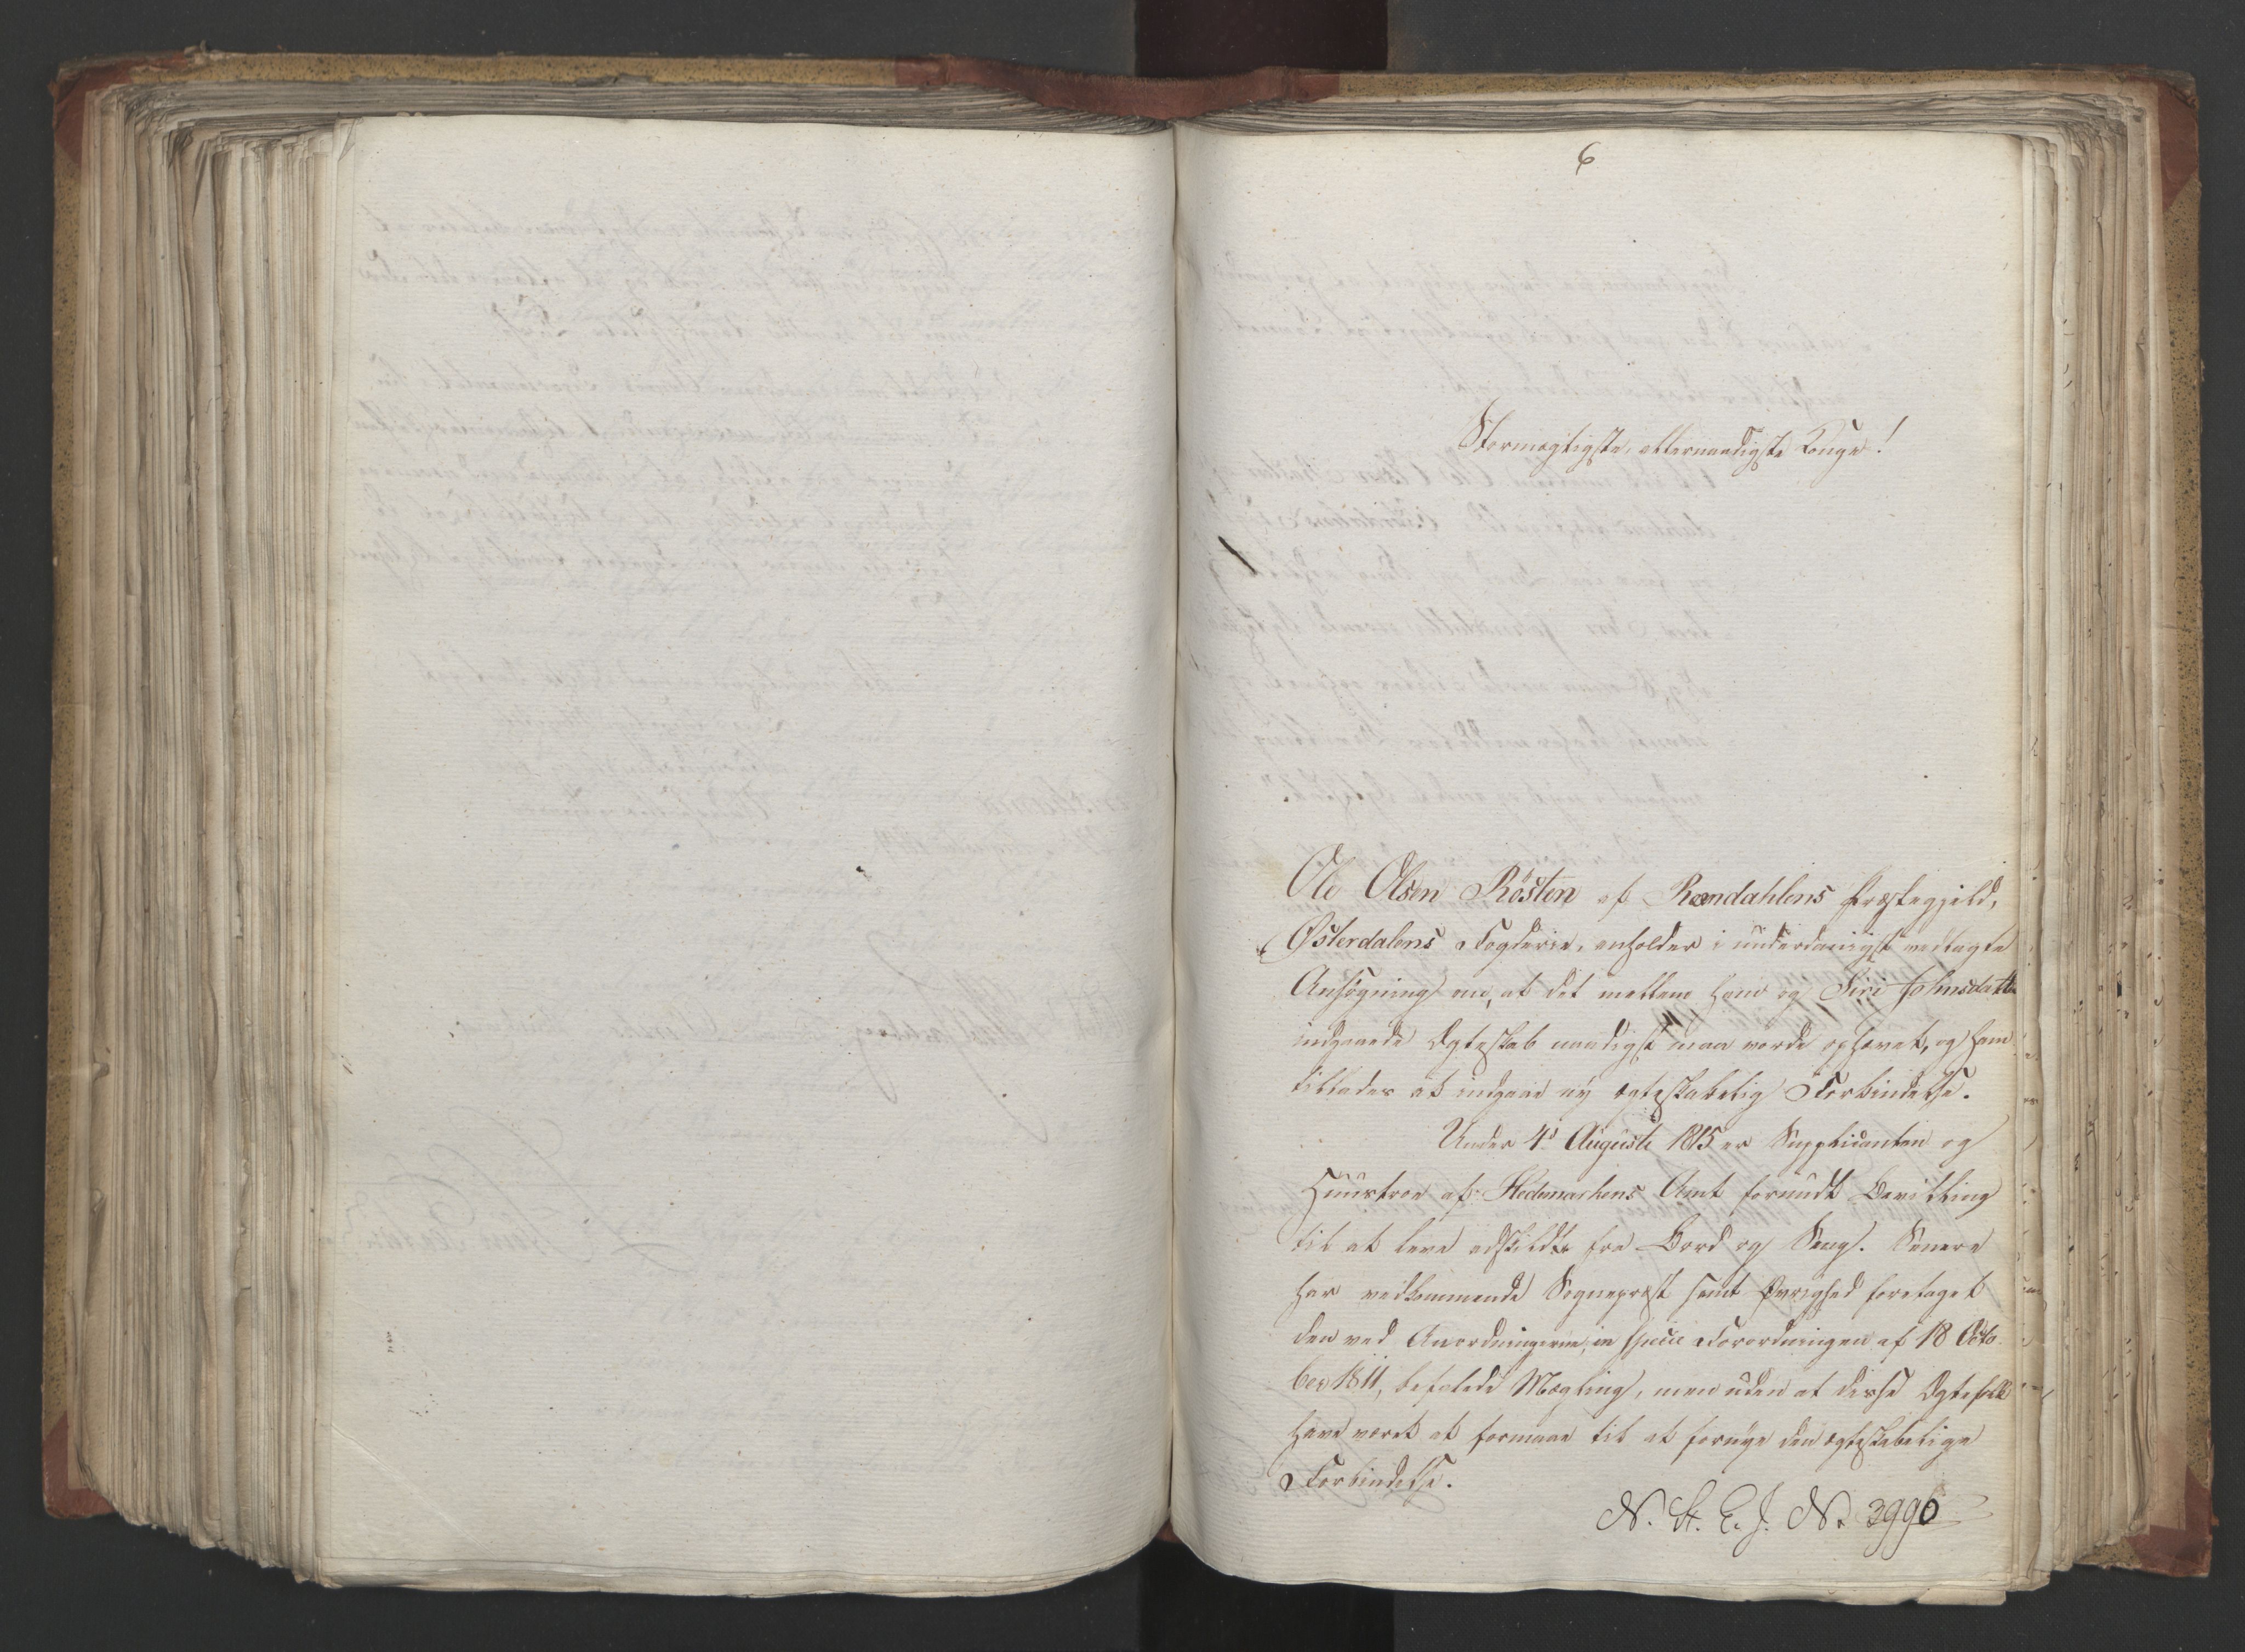 6
Stormægtigste, allernaadigste Konge!
Ole Olsen Rösten af Rændahlens Præstegjeld,
Østerdalens Fogderie, anholder i underdanigst vedlagte
Ansøgning om, at det mellem ham og Siri Johnsdatter
indgaaede Ægteskab naadigst maa vorde ophævet, og ham
tillades at indgaae ny ægteskabelig Forbindelse.
Under 4d Augusti 1815 er Supplicanten og
Huustroe af Hedemarkens Amt forundt Bevilling
til at leve adskildte fra Bord og Seng. Senere
har vedkommende Sognepræst samt Øvrighed foretaget
den ved Anordningerne, in specie Forordningen af 18 Octo-
ber 1811, befalede Mægling, men uden at disse Ægtefolk
have været at formaae til at fornye den ægteskabelige
Forbindelse.
N. St. E. J. No 3996